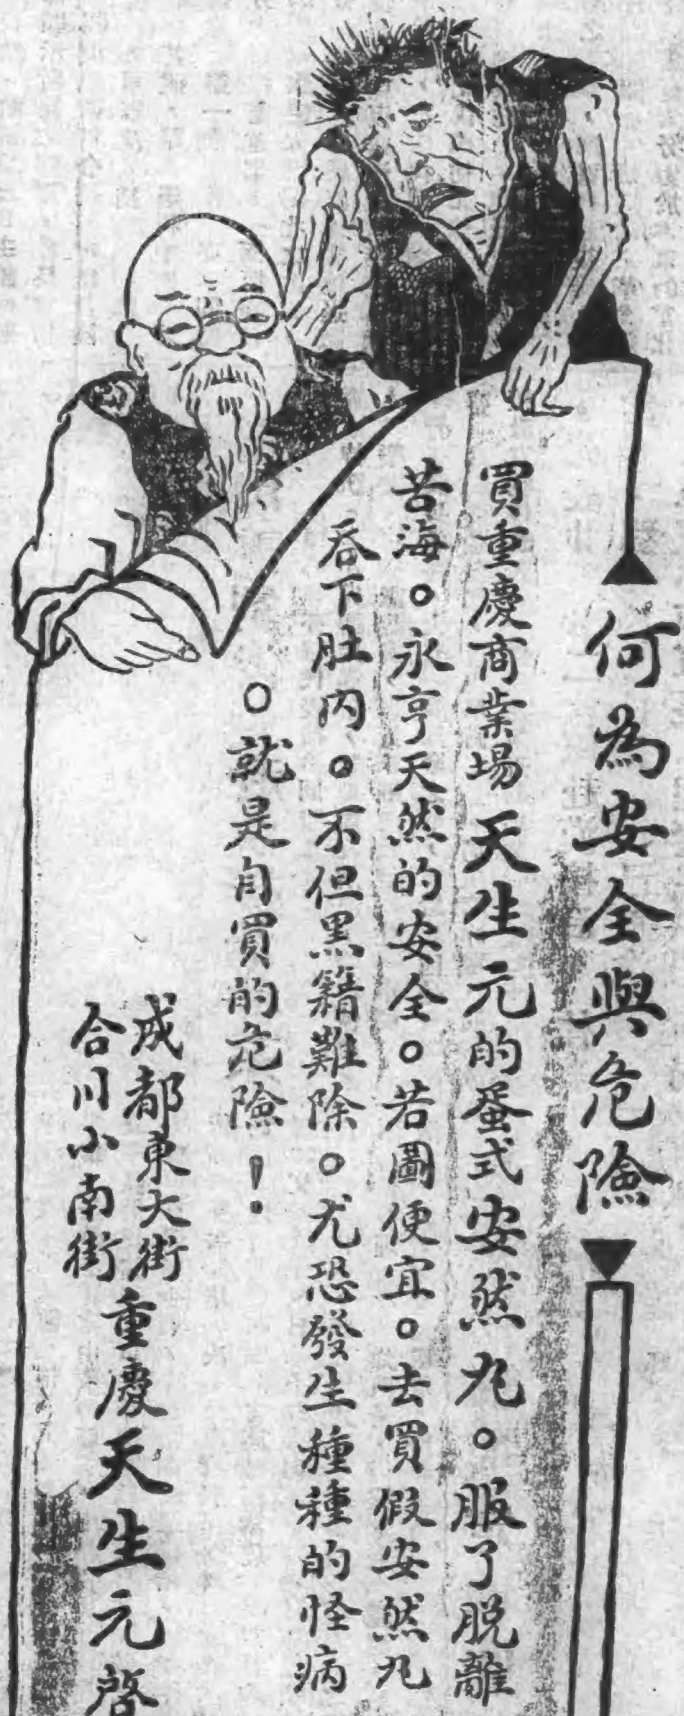 何為安全與危險
買重慶商業場天生元的蛋式安然丸。服了脫離
苦海。永亨天然的安全。若圖便宜。去買假安然丸
吞下肚內。不但黑籍難除。尤恐發生種種的怪病
。就是自買的危險！
成都東大街
合川小南街
重慶天生元啓